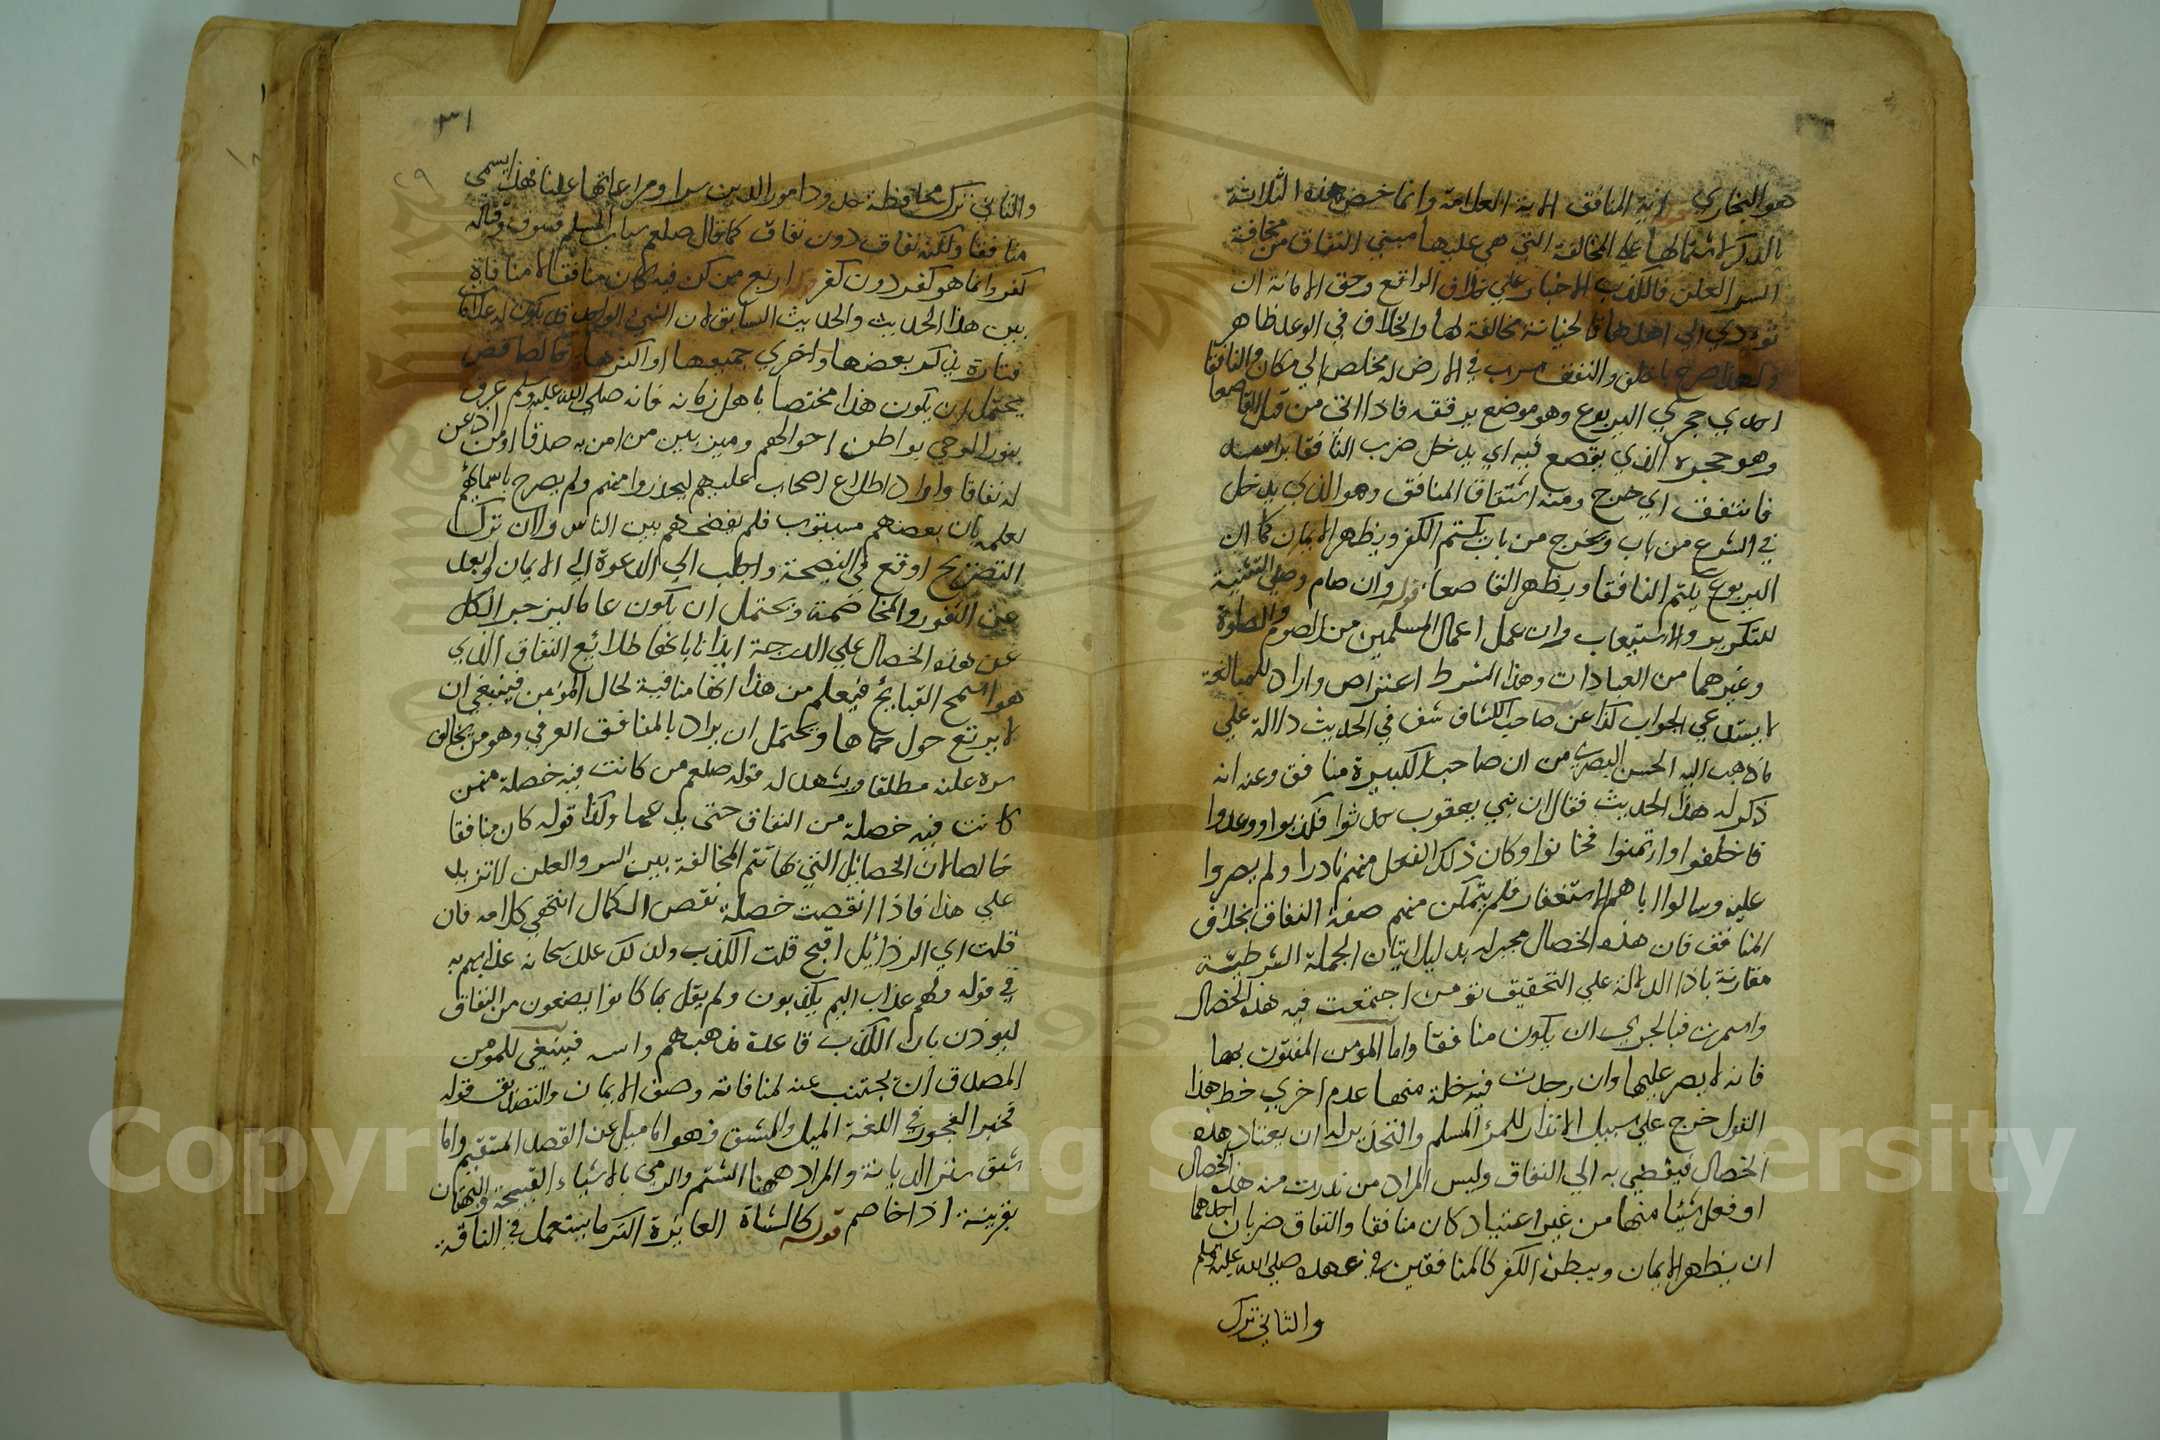 هو البخاري اية المنافق الاية العلامة وانما خص هذه الثلاثة
بالذكر لاشتمالها على المخالفة التي هي عليها مبني النفاق من مخالفة
السر العلن فالكذب الاخبار على خلاف الواقع وحق الامانة ان
تودي الى اهلها فالخيانة مخالفة لها والخلاف في الوعد ظاهر
ولهذا صرح باخلف والنفق سرب في الارض له مخلص الى مكان والنافقا
احدي جحري اليربوع وهو موضع يرققه فاذا اتى من قبل القاصعا
وهو حجره الذي يقصع فيه اي يدخل ضرب النافقا براسه
فانتفق اي خرج ومنه اشتقاق المنافق وهو الذي يدخل
في الشرع من باب ويخرج من باب يكتم الكفر ويظهر الايمان كما ان
اليربوع يكتم النافقا ويظهر القاصعا قوله وان صام وصلى التثنية
للتكرير والاستيعاب وان عمل اعمال المسلمين من الصوم والصلوة
وغيرهما من العبادات وهذا الشرط اعتراض وارد للمبالغة
لا يستدعي الجواب كذا عن صاحب الكشاف شف في الحديث دلالة على
ما ذهب اليه الحسن البصري من ان صاحب الكبيرة منافق وعنه انه
ذكر له هذا الحديث فقال ان بني يعقوب حدثوا فكذبوا ووعدوا
فاخلفوا وارتمنوا فخانوا وكان ذلك الفعل منهم نادرا ولم يصروا
عليه وسالوا اباهم الاستغفار فلم يتمكن منهم صفة النفاق بخلاف
المنافق فان هذه الخصال هجيراه بدليل اتيان الجملة الشرطية
مقارنة باذا الدالة على التحقيق تو من اجتمعت فيه هذه الخصال
واستمرت فبالحري ان يكون منافقا واما المؤمن المفتون بها
فانه لا يصر عليها وان وجدت فيه خلة منها عدم اخري خط هذا
القول خرج على سبيل الانذار للمرء المسلم والتحذير له ان يعتاد هذه
الخصال فيفضي به الى النفاق وليس المراد من ندرت منه هذه الخصال
او فعل شيئا منها من غير اعتياد كان منافقا والنفاق ضربان احدهما
ان يظهر الايمان ويبطن الكفر كالمنافقين في عهده صلى الله عليه وسلم
والثاني ترك
٣١
٢٩
والثاني ترك محافظة حدود امور الدين سرا ومراعاتها علنا فهذا يسمى
منافقا ولكنه نفاق دون نفاق كما قال صلعم سباب المسلم فسوق وقتاله
كفر وانما هو كفر دون كفر قوله اربع من كن فيه كان منافقا لا منافاة
بين هذا الحديث والحديث السابق لان الشئ الواحد قد يكون له علامات
فتارة يذكر بعضها واخري جميعها او اكثرها قوله خالصا قض
يحتمل ان يكون هذا مختصا باهل زمانه فانه صلى الله عليه وسلم عرف
بنور الوحي بواطن احوالهم وميز بين من امن به صدقا ومن اذعن
له نفاقا واراد اطلاع اصحابه عليهم ليحذروا منهم ولم يصرح باسمائهم
لعلمه بان بعضهم سيتوب فلم يفضحهم بين الناس ولان ترك
التصريح اوقع في النصيحة واجلب الى الدعوة الى الايمان وابعد
عن النفور والمخاصمة ويحتمل ان يكون عاما لينزجر الكل
عن هذه الخصال على اكد وجه ايذانا بانها طلائع النفاق الذي
هو اسمج القبايح فيعلم من هذا انها منافية لحال المؤمن فينبغي ان
لا يرتع حول حماها ويحتمل ان يراد بالمنافق العرفي وهو من يخالف
سره علنه مطلقا ويشهد له قوله صلعم من كانت فيه خصلة منهن
كانت فيه خصلة من النفاق حتى يدعها وكذا قوله كان منافقا
خالصا لان الخصائل التي بها تتم المخالفة بين السر والعلن لا تزيد
علي هذا فاذا انقصت خصلة نقص الكمال انتهى كلامه فان
قلت اي الرذائل اقبح قلت الكذب ولذلك علل سبحانه عذابهم به
في قوله ولهم عذاب اليم بما كانوا يكذبون ولم يقل بما كانوا يصنعون من النفاق
ليوذن بان الكذب قاعدة مذهبهم واسه فينبغي للمؤمن
المصدق ان يجتنب عنه لمنافاته وصف الايمان والتصديق قوله
فجر الفجور في اللغة الميل والشق فهو اما ميل عن القصد المستقيم واما
شق ستر الديانة والمراد ههنا الشتم والرمي بالاشياء القبيحة والبهتان
بقرينة اذا خاصم قوله كالشاة العايرة اكثر ما يستعمل في الناقة
Copyright © King Saud University